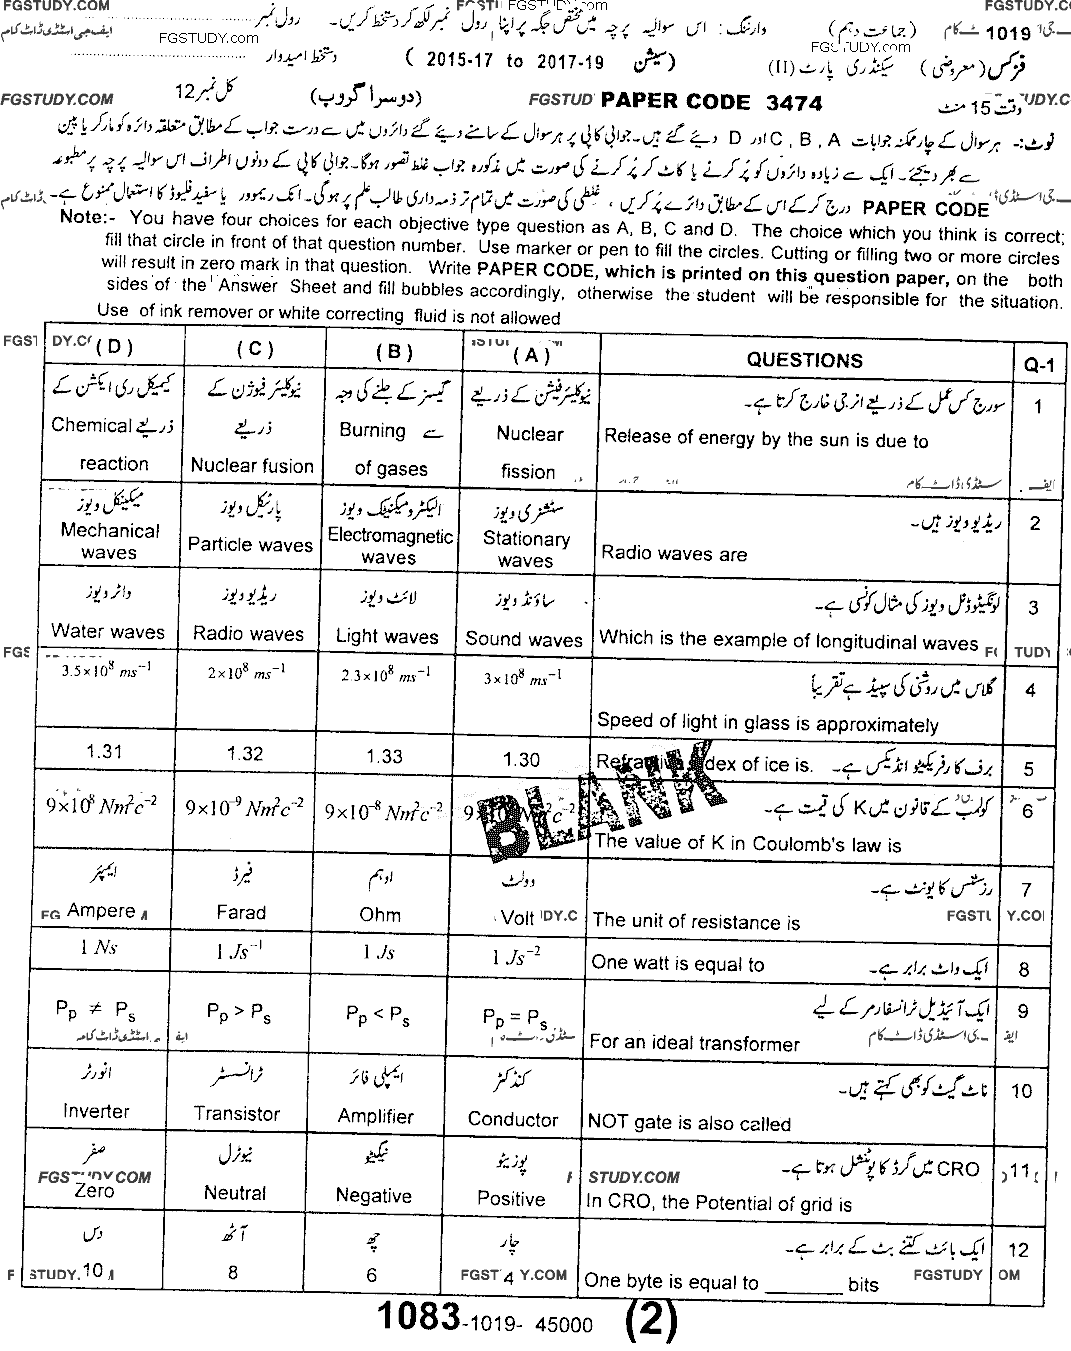 FGSTUDY.COM
FGSTUDY.COM
FGSTUDY.COM
وارننگ: اس سوالیہ پرچہ میں مختص جگہ پر اپنا رول نمبر لکھ کر دستخط کریں۔ رول نمبر
1019 (جماعت دہم)
ایف جی اسٹڈی ڈاٹ کام
FGSTUDY.com
فزکس (معروضی) سیکنڈری پارٹ (II)
(سیشن 2015-17 to 2017-19)
دستخط امیدوار
وقت 15 منٹ
PAPER CODE 3474
(دوسرا گروپ)
کل نمبر 12
FGSTUDY.COM
نوٹ:- ہر سوال کے چار ممکنہ جوابات A , B , C اور D دیئے گئے ہیں۔ جوابی کاپی پر ہر سوال کے سامنے دیئے گئے دائروں میں سے درست جواب کے مطابق متعلقہ دائرہ کو مارکر یا پین
سے بھر دیجئے۔ ایک سے زیادہ دائروں کو پُر کرنے یا کاٹ کر پُر کرنے کی صورت میں مذکورہ جواب غلط تصور ہوگا۔ جوابی کاپی کے دونوں اطراف اس سوالیہ پرچہ پر مطبوعہ
PAPER CODE درج کرکے اس کے مطابق دائرے پُر کریں ، غلطی کی صورت میں تمام تر ذمہ داری طالب علم پر ہوگی۔ انک ریموور یا سفید فلیوڈ کا استعمال ممنوع ہے۔
Note:- You have four choices for each objective type question as A, B, C and D. The choice which you think is correct;
fill that circle in front of that question number. Use marker or pen to fill the circles. Cutting or filling two or more circles
will result in zero mark in that question. Write PAPER CODE, which is printed on this question paper, on the both
sides of the Answer Sheet and fill bubbles accordingly, otherwise the student will be responsible for the situation.
Use of ink remover or white correcting fluid is not allowed
(D) (C) (B) (A) QUESTIONS Q-1
کیمیکل ری ایکشن کے ذریعے نیوکلیئر فیوژن کے ذریعے گیسز کے جلنے کی وجہ سے نیوکلیئر فشن کے ذریعے سورج کس عمل کے ذریعے انرجی خارج کرتا ہے۔ 1
Chemical reaction Nuclear fusion Burning of gases Nuclear fission Release of energy by the sun is due to
مکینیکل ویوز پارٹیکل ویوز الیکٹرومیگنیٹک ویوز سٹیشنری ویوز ریڈیو ویوز ہیں۔ 2
Mechanical waves Particle waves Electromagnetic waves Stationary waves Radio waves are
واٹر ویوز ریڈیو ویوز لائٹ ویوز ساؤنڈ ویوز لونگیٹیوڈنل ویوز کی مثال کونسی ہے۔ 3
Water waves Radio waves Light waves Sound waves Which is the example of longitudinal waves
3.5×10⁸ ms⁻¹ 2×10⁸ ms⁻¹ 2.3×10⁸ ms⁻¹ 3×10⁸ ms⁻¹ گلاس میں روشنی کی سپیڈ ہے تقریباً 4
Speed of light in glass is approximately
1.31 1.32 1.33 1.30 Refractive index of ice is. برف کا رفریکٹو انڈیکس ہے۔ 5
9×10⁸ Nm²c⁻² 9×10⁻⁹ Nm²c⁻² 9×10⁻⁸ Nm²c⁻² کولمب کے قانون میں K کی قیمت ہے۔ 6
BLANK
The value of K in Coulomb's law is
ایمپئر فیرڈ اوہم وولٹ رزسٹنس کا یونٹ ہے۔ 7
Ampere Farad Ohm Volt The unit of resistance is
1 Ns 1 Js⁻¹ 1 Js 1 Js⁻² One watt is equal to ایک واٹ برابر ہے۔ 8
Pp ≠ Ps Pp > Ps Pp < Ps Pp = Ps ایک آئیڈیل ٹرانسفارمر کے لیے 9
For an ideal transformer
انورٹر ٹرانسسٹر ایمپلی فائر کنڈکٹر ناٹ گیٹ کو بھی کہتے ہیں۔ 10
Inverter Transistor Amplifier Conductor NOT gate is also called
صفر نیوٹرل نیگیٹو پوزیٹو CRO میں گرڈ کا پوٹنشل ہوتا ہے۔ 11
Zero Neutral Negative Positive In CRO, the Potential of grid is
دس آٹھ چھ چار ایک بائٹ کتنے بٹ کے برابر ہے۔ 12
10 8 6 4 One byte is equal to _______ bits
1083-1019- 45000 (2)